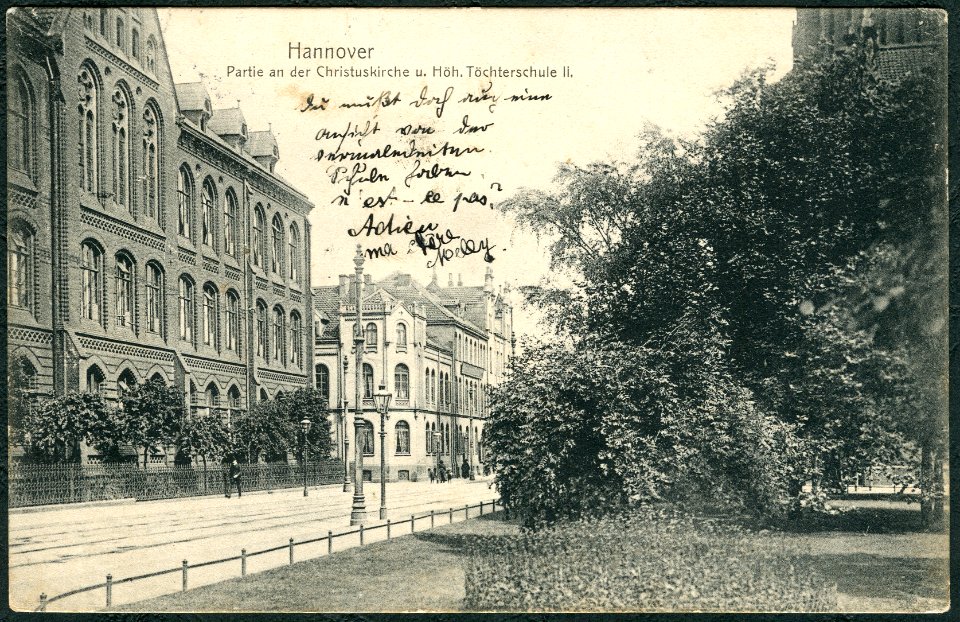 Hannover
Partie an der Christuskirche u. Höh. Töchterschule II.
du mußt doch auch eine
ansicht von der
vermaledeiten
Schule haben
n'est-ce pas?
Adieu
ma chère
Nelly